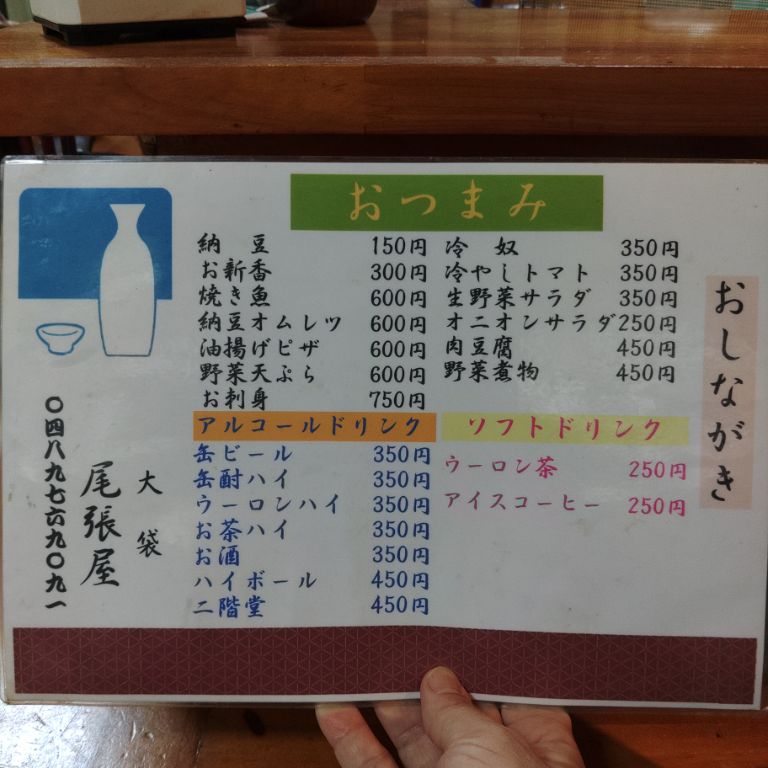 おつまみ
納 豆 150円
お新香 300円
焼き魚 600円
納豆オムレツ 600円
油揚げピザ 600円
野菜天ぷら 600円
お刺身 750円
冷 奴 350円
冷やしトマト 350円
生野菜サラダ 350円
オニオンサラダ 250円
肉豆腐 450円
野菜煮物 450円
アルコールドリンク
缶ビール 350円
缶酎ハイ 350円
ウーロンハイ 350円
お茶ハイ 350円
お酒 350円
ハイボール 450円
二階堂 450円
ソフトドリンク
ウーロン茶 250円
アイスコーヒー 250円
おしながき
大袋
尾張屋
〇四八九七六九〇九一